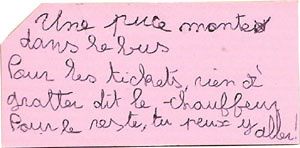 Une puce monte
dans le bus
Pour les tickets, rien à
gratter dit le chauffeur
Pour le reste, tu peux y aller!